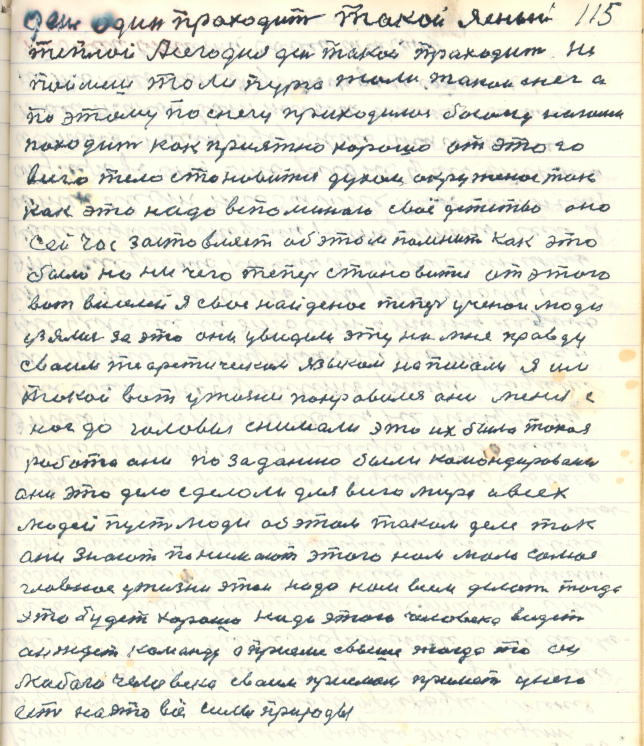 ден один праходит такой ясный 115
теплой Асегодня ден такой праходит. Не
поймеш то ли пурга толи такой снег а
по этому по снегу приходится босому
походит как приятно хорошо от этого
висо тело становится духом окружоное так
как это надо вспоминаю своё детство оно
сей час заставляет об этом помнит как это
было но ни чего тепер становится от этого
вот висолей Я свое найденое тепер ученои люди
взялис за это они увидели эту на мне правду
своим теаретическим языком написали Я им
такой вот ужизни пондравился ани меня с
ног до головы снимали это их было такая
работа ани по заданию были камондированы
ани это дело сделоли для висо мира авсех
людей пуст люди об этом таком деле так
ани знают понимают этого нам мало самое
главное ужизни этои надо нам всем делать тогда
это будет хорошо надо этого человека видет
он ждет команду о приеме свыше тогда то он
любого человека своим приемом примет унего
ест на это всё силы природы